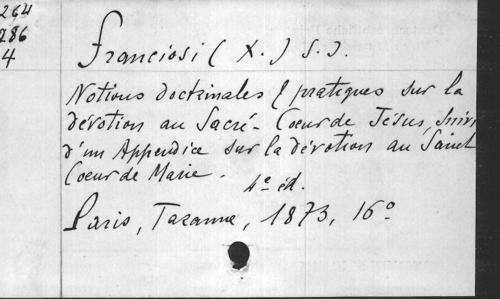 264
286
4
Franciosi (X.) S.J.
Notions doctrinales & pratiques sur la
dévotion au Sacré-Coeur de Jésus, suivi
d'un Appendice sur la dévotion au Saint
Coeur de Marie. 4e éd.
Paris, Taranne, 1873, 16°